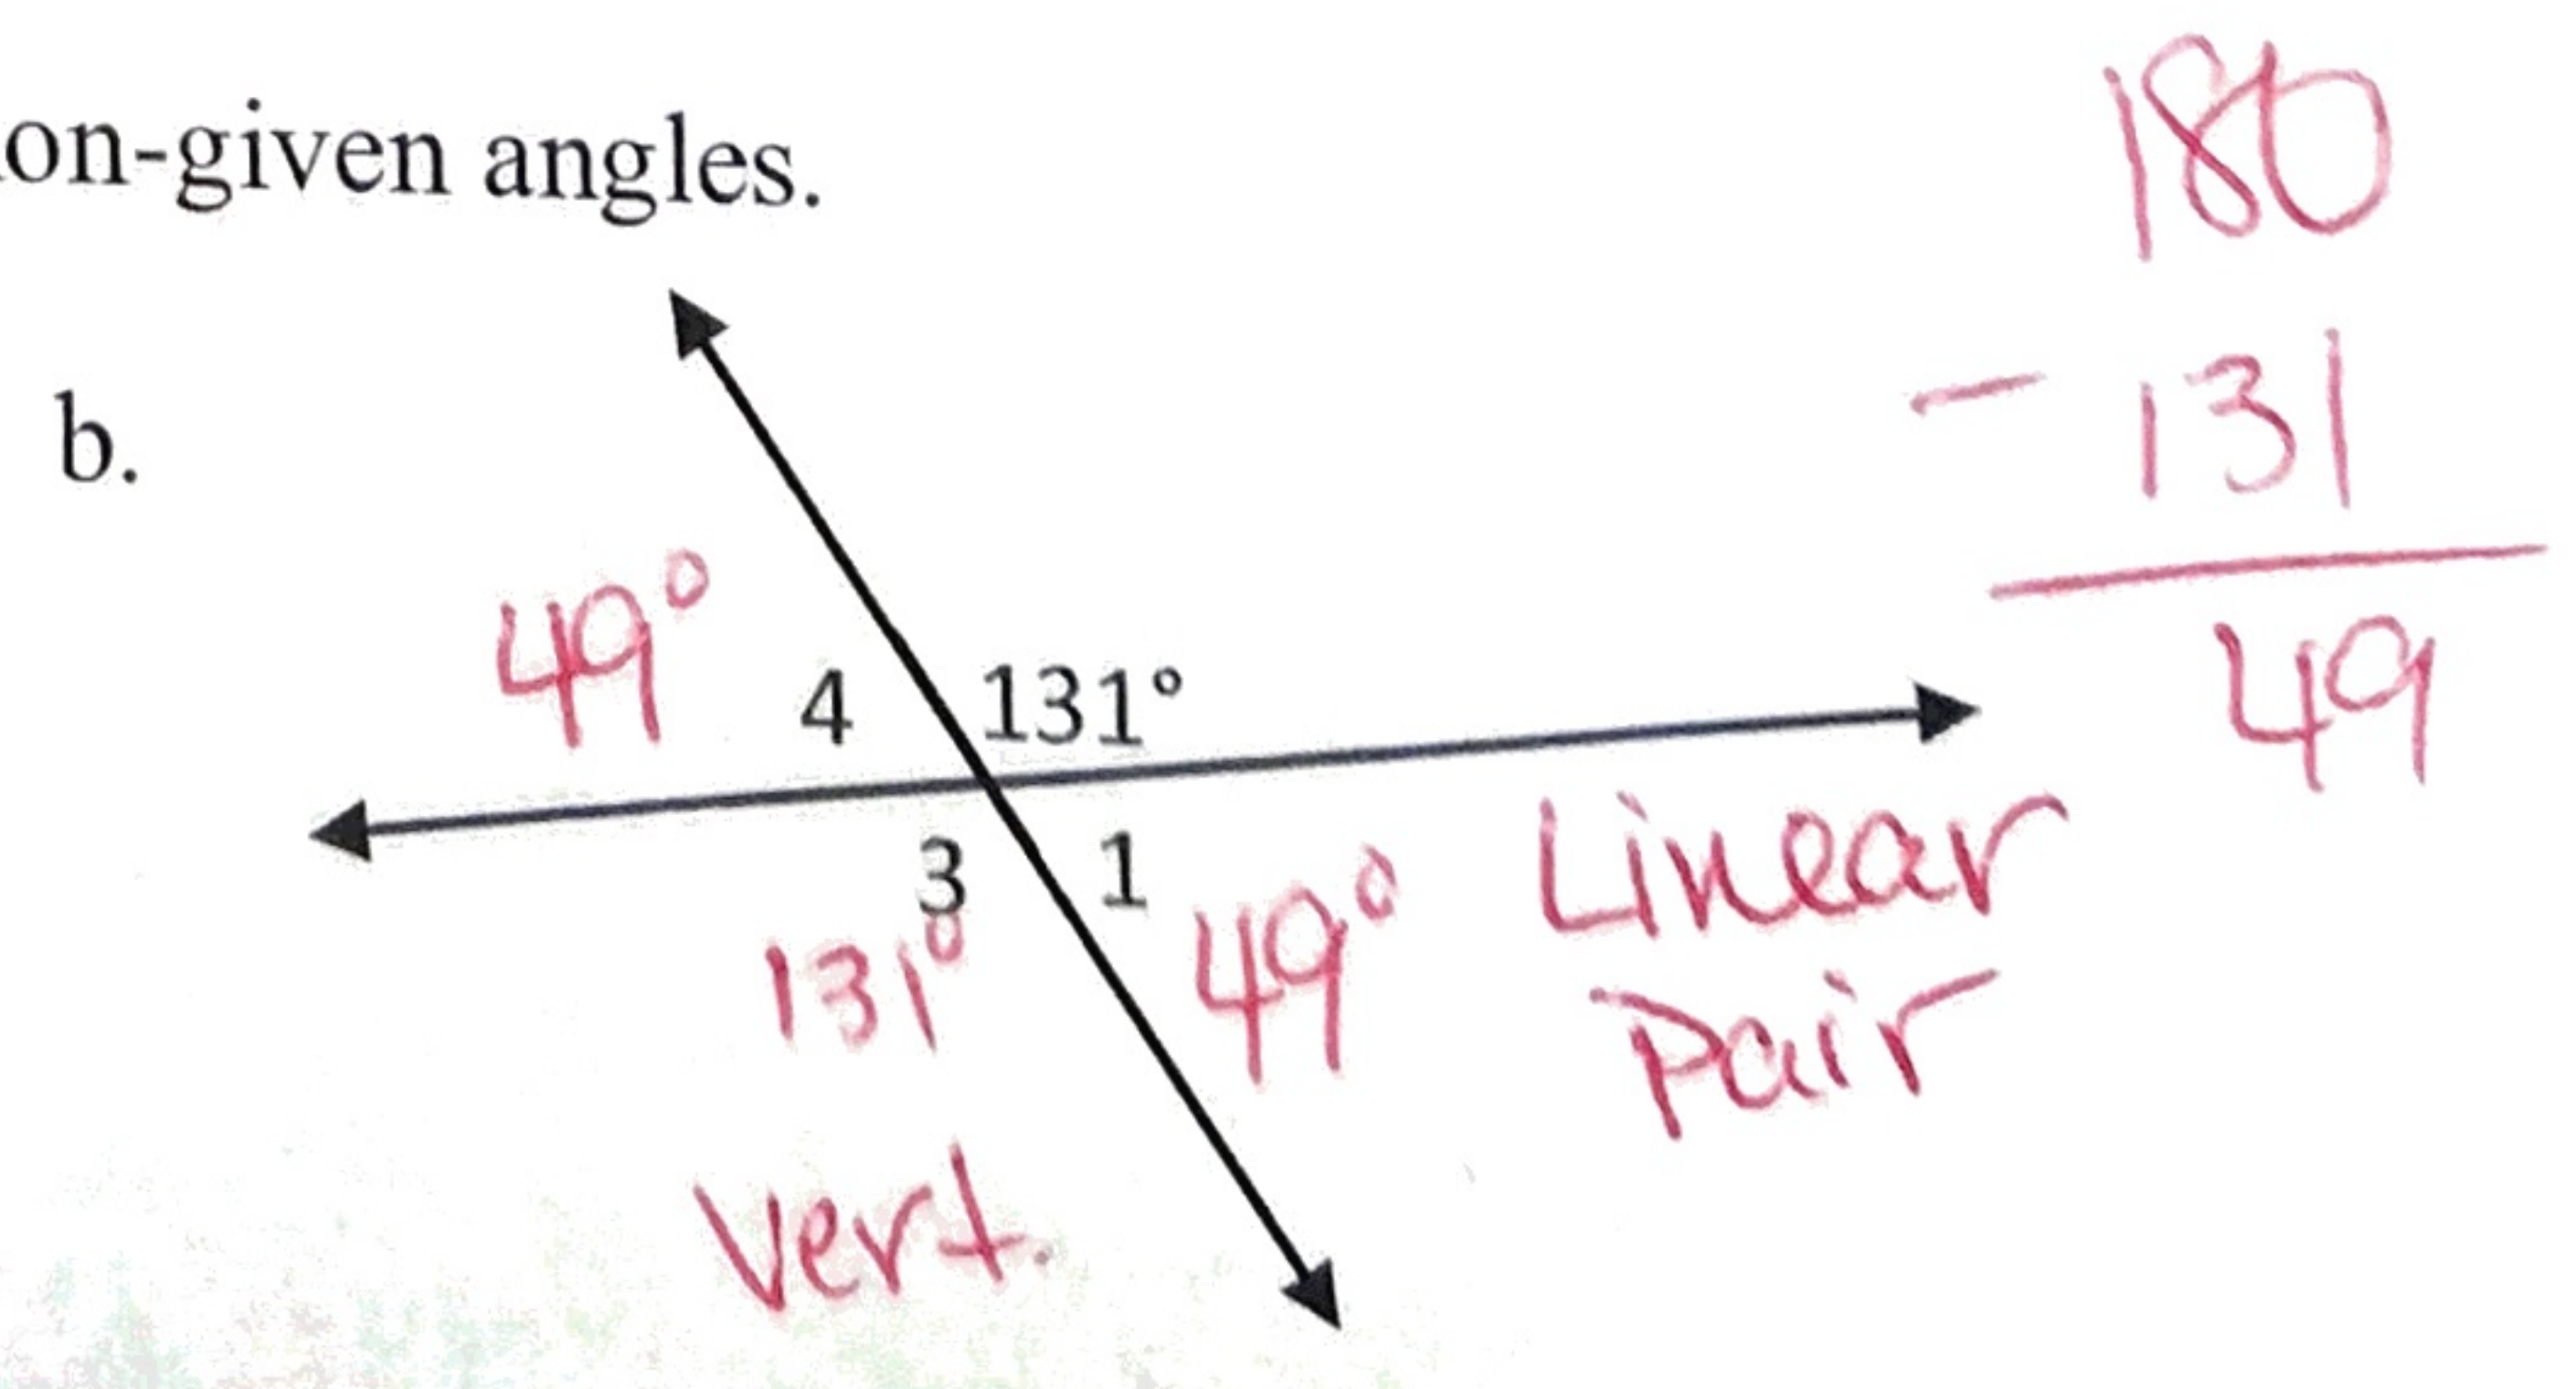 on-given angles.
180
b.
- 131
49
49°
4
131°
3
1
131°
49°
Linear
Pair
Vert.